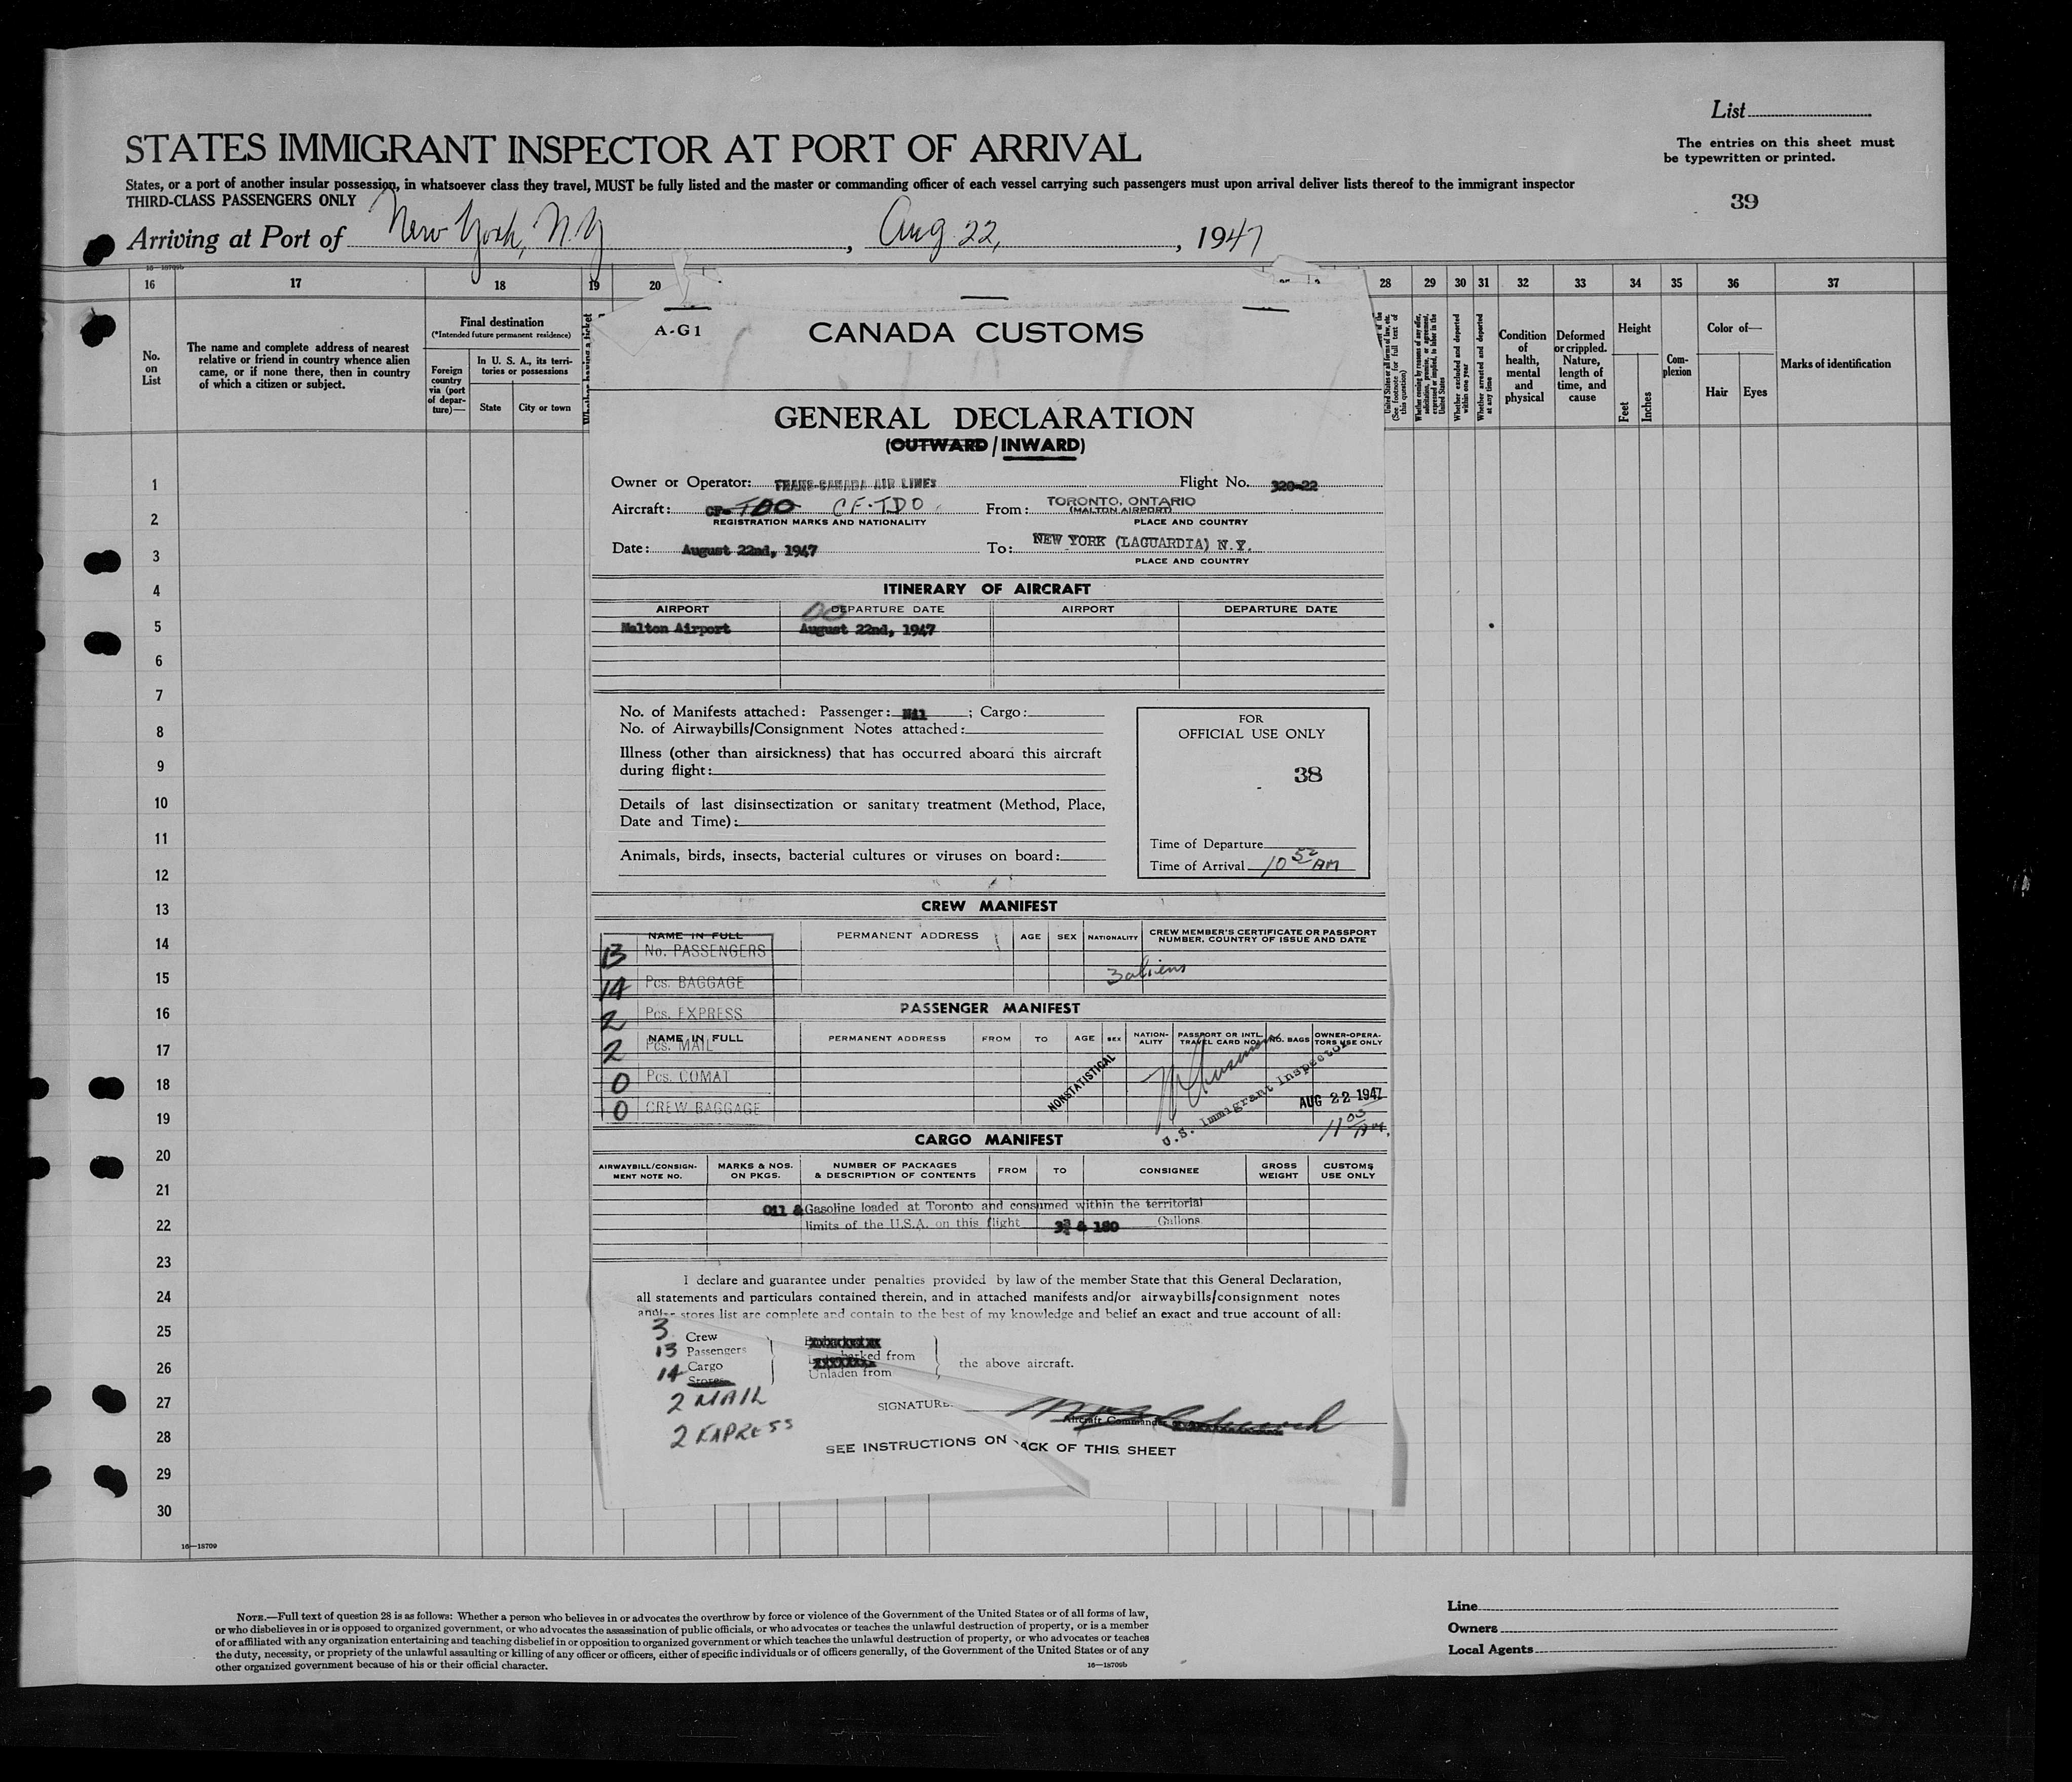 List
STATES IMMIGRANT INSPECTOR AT PORT OF ARRIVAL
The entries on this sheet must
be typewritten or printed.
States, or a port of another insular possession, in whatsoever class they travel, MUST be fully listed and the master or commanding officer of each vessel carrying such passengers must upon arrival deliver lists thereof to the immigrant inspector
THIRD-CLASS PASSENGERS ONLY
39
Arriving at Port of New York, N.Y, Aug 22, 1947
16—18709b
16 17 18 19 20 28 29 30 31 32 33 34 35 36 37
No.
on
List
The name and complete address of nearest
relative or friend in country whence alien
came, or if none there, then in country
of which a citizen or subject.
Final destination
(*Intended future permanent residence)
Foreign
country
via (port
of depar-
ture)—
In U. S. A., its terri-
tories or possessions
State City or town
Whether having a ticket
United States or all forms of law, etc.
(See footnote for full text of
this question)
Whether coming by reasons of any offer,
solicitation, promise, or agreement,
expressed or implied, to labor in the
United States
Whether excluded and deported
within one year
Whether arrested and deported
at any time
Condition
of
health,
mental
and
physical
Deformed
or crippled.
Nature,
length of
time, and
cause
Height
Feet Inches
Com-
plexion
Color of—
Hair Eyes
Marks of identification
A-G1
CANADA CUSTOMS
GENERAL DECLARATION
(OUTWARD / INWARD)
Owner or Operator: TRANS-CANADA AIR LINES Flight No. 320-22
Aircraft: CF-TDO CF-TDO From: TORONTO, ONTARIO
(MALTON AIRPORT)
REGISTRATION MARKS AND NATIONALITY PLACE AND COUNTRY
Date: August 22nd, 1947 To: NEW YORK (LAGUARDIA) N.Y.
PLACE AND COUNTRY
ITINERARY OF AIRCRAFT
AIRPORT DEPARTURE DATE AIRPORT DEPARTURE DATE
Malton Airport August 22nd, 1947
No. of Manifests attached: Passenger: Nil ; Cargo:
No. of Airwaybills/Consignment Notes attached:
Illness (other than airsickness) that has occurred aboard this aircraft
during flight:
Details of last disinsectization or sanitary treatment (Method, Place,
Date and Time):
Animals, birds, insects, bacterial cultures or viruses on board:
FOR
OFFICIAL USE ONLY
38
Time of Departure
Time of Arrival 10 52 AM
CREW MANIFEST
NAME IN FULL PERMANENT ADDRESS AGE SEX NATIONALITY CREW MEMBER'S CERTIFICATE OR PASSPORT
NUMBER, COUNTRY OF ISSUE AND DATE
13 No. PASSENGERS
3 aliens
14 Pcs. BAGGAGE
PASSENGER MANIFEST
2 Pcs. EXPRESS
NAME IN FULL PERMANENT ADDRESS FROM TO AGE SEX NATION-
ALITY PASSPORT OR INTL.
TRAVEL CARD NO. NO. BAGS OWNER-OPERA-
TORS USE ONLY
2 Pcs. MAIL
0 Pcs. COMAT
0 CREW BAGGAGE
NONSTATISTICAL
U.S. Immigrant Inspector
AUG 22 1947
11 00 AM.
CARGO MANIFEST
AIRWAYBILL/CONSIGN-
MENT NOTE NO. MARKS & NOS.
ON PKGS. NUMBER OF PACKAGES
& DESCRIPTION OF CONTENTS FROM TO CONSIGNEE GROSS
WEIGHT CUSTOMS
USE ONLY
Oil & Gasoline loaded at Toronto and consumed within the territorial
limits of the U.S.A. on this flight & 180 Gallons
I declare and guarantee under penalties provided by law of the member State that this General Declaration,
all statements and particulars contained therein, and in attached manifests and/or airwaybills/consignment notes
and/or stores list are complete and contain to the best of my knowledge and belief an exact and true account of all:
3 Crew
13 Passengers
14 Cargo
Stores
barked from
Unladen from
the above aircraft.
2 MAIL
2 EXPRESS
SIGNATURE
Aircraft Commander
SEE INSTRUCTIONS ON ACK OF THIS SHEET
1
2
3
4
5
6
7
8
9
10
11
12
13
14
15
16
17
18
19
20
21
22
23
24
25
26
27
28
29
30
16—18709
NOTE.—Full text of question 28 is as follows: Whether a person who believes in or advocates the overthrow by force or violence of the Government of the United States or of all forms of law,
or who disbelieves in or is opposed to organized government, or who advocates the assassination of public officials, or who advocates or teaches the unlawful destruction of property, or is a member
of or affiliated with any organization entertaining and teaching disbelief in or opposition to organized government or which teaches the unlawful destruction of property, or who advocates or teaches
the duty, necessity, or propriety of the unlawful assaulting or killing of any officer or officers, either of specific individuals or of officers generally, of the Government of the United States or of any
other organized government because of his or their official character.
16—18709b
Line
Owners
Local Agents